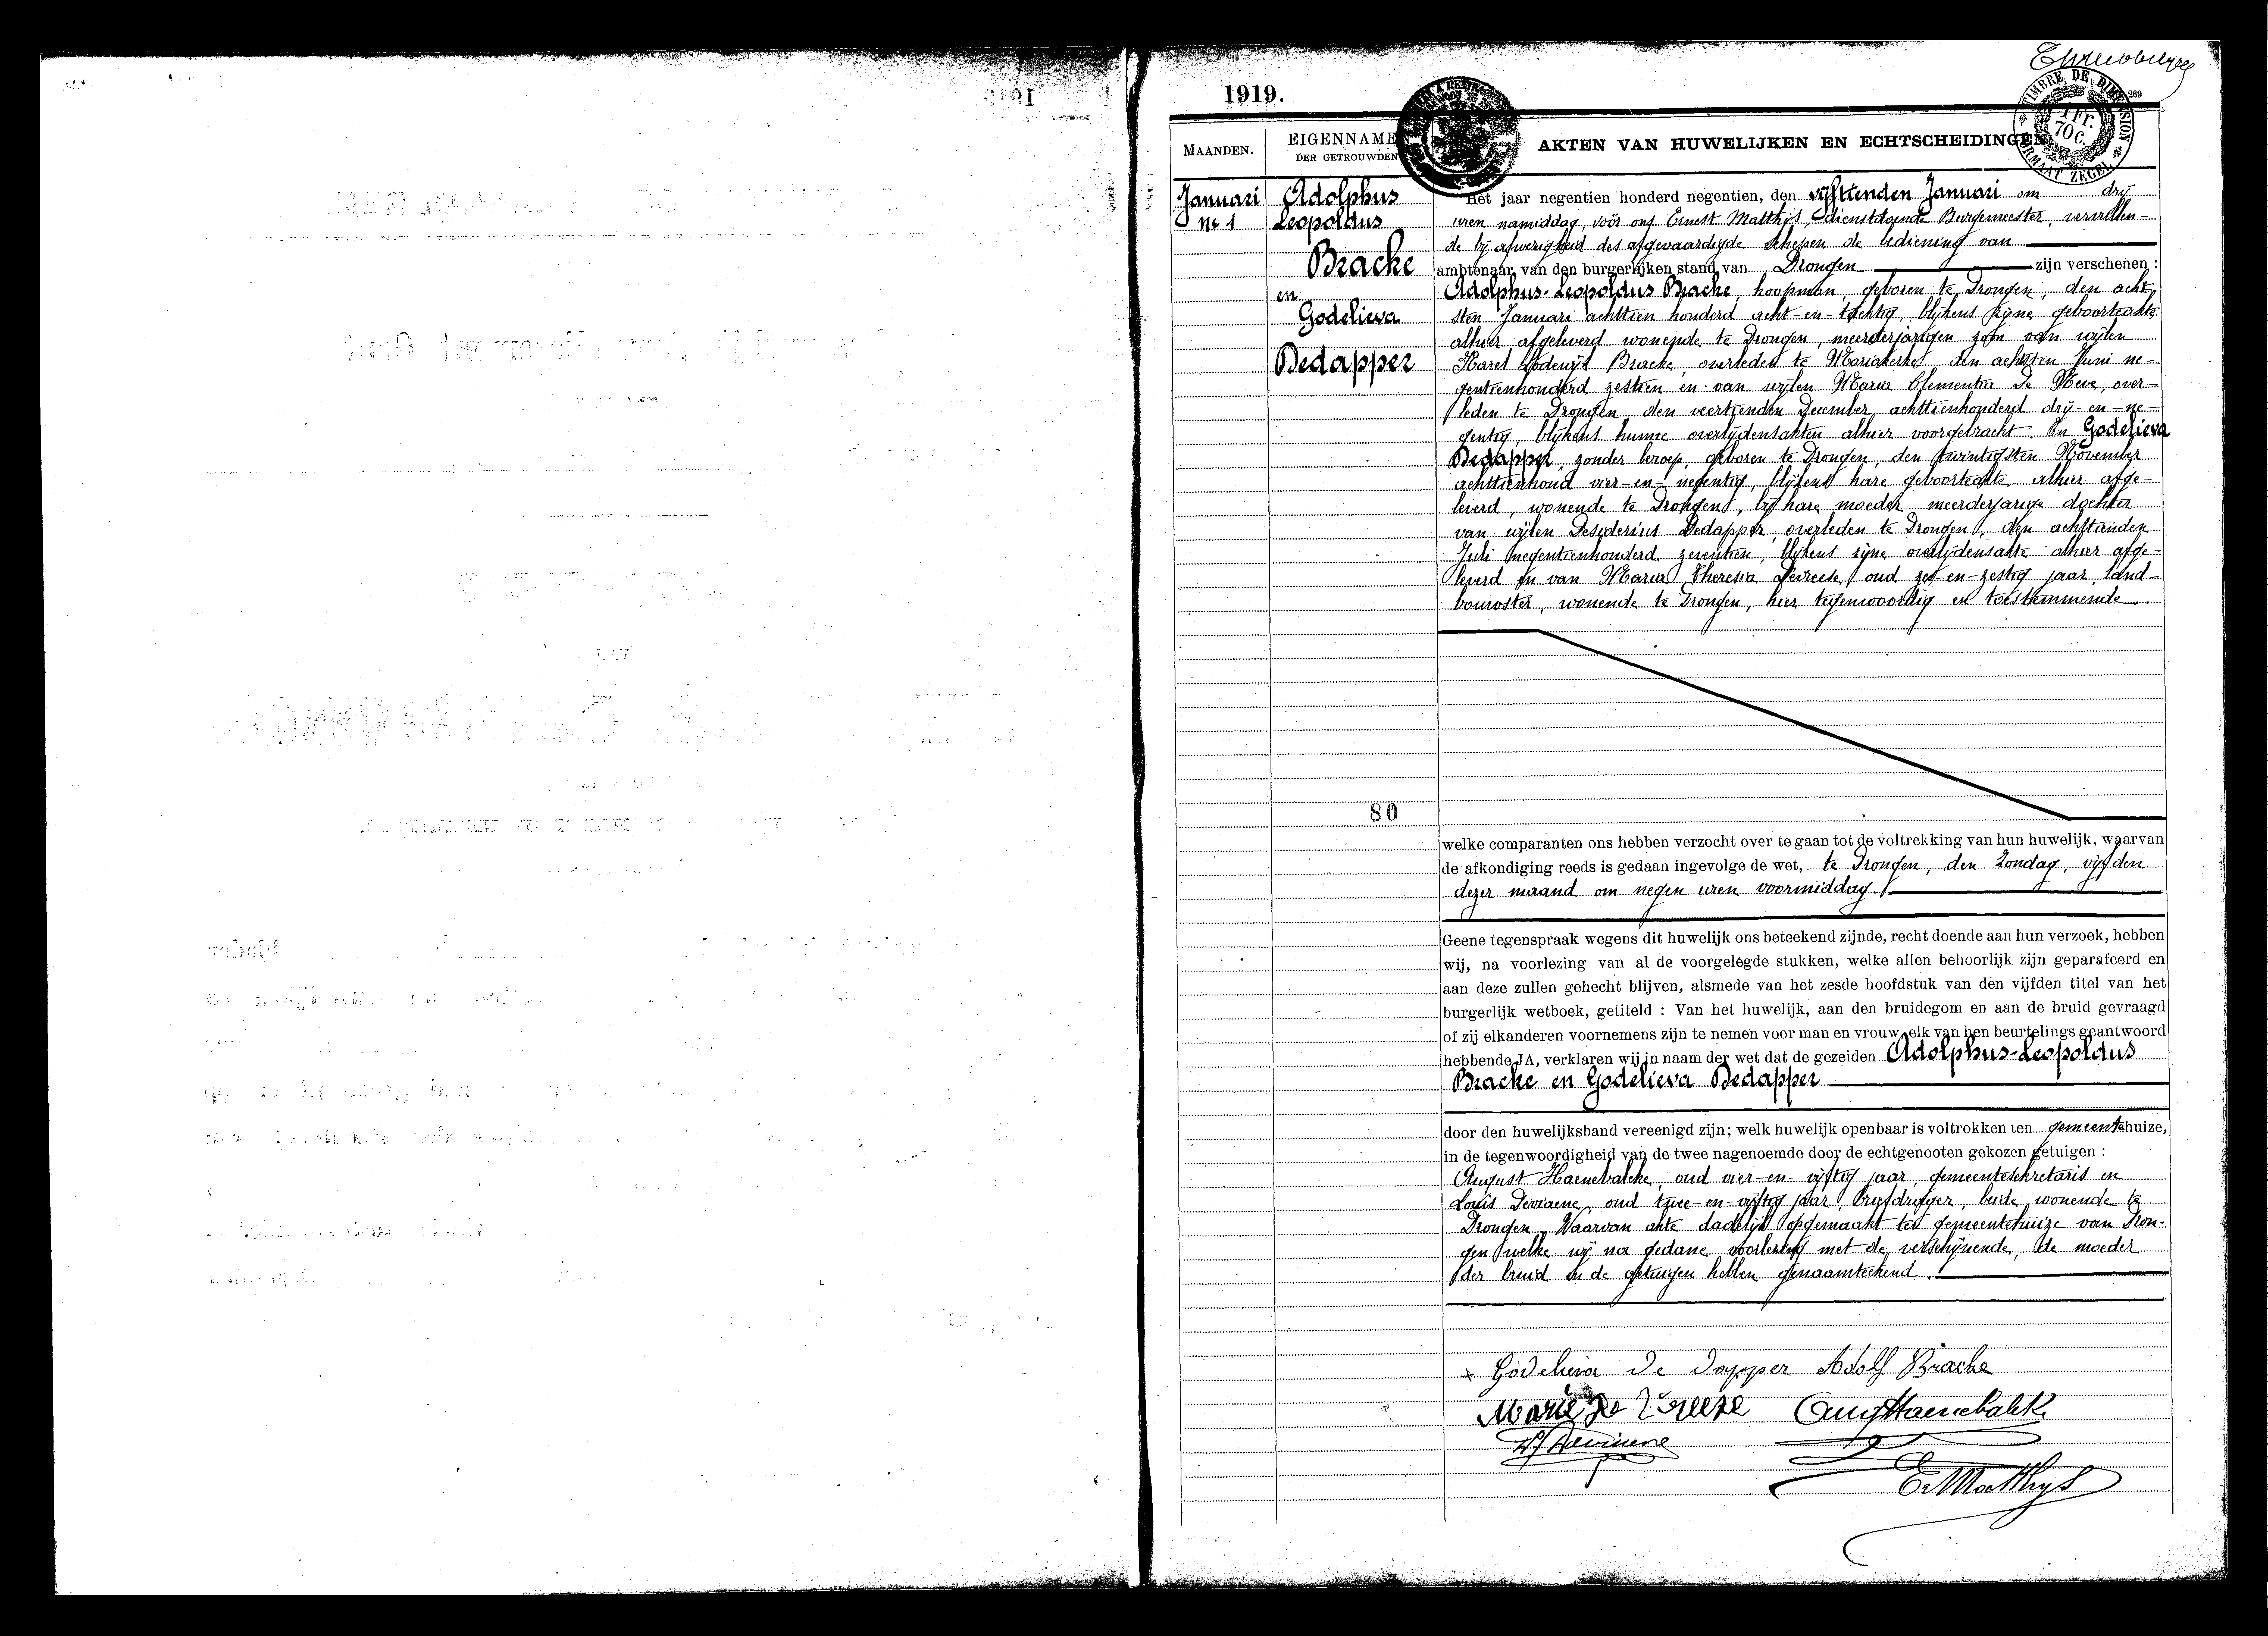 1919.
269
TIMBRE DE DIMENSION
1 Fr. 70 C.
FORMAAT ZEGEL
MAANDEN.
EIGENNAMEN
DER GETROUWDEN
AKTEN VAN HUWELIJKEN EN ECHTSCHEIDINGEN
Januari
No 1
Adolphus
Leopoldus
Bracke
en
Godelieva
Dedapper
80
Het jaar negentien honderd negentien, den vijftienden Januari om drij
uren namiddag, voor ons Ernest Matthijs, dienstdoende Burgemeester, vervullen-
de bij afwezigheid des afgevaardigde schepen de bediening van
ambtenaar van den burgerlijken stand van Drongen zijn verschenen :
Adolphus-Leopoldus Bracke, koopman, geboren te Drongen, den acht
sten Januari achttien honderd acht-en-tachtig, blijkens zijne geboorteakte
alhier afgeleverd wonende te Drongen, meerderjarigen zoon van wijlen
Karel Lodewijk Bracke, overleden te Mariakerke den achtsten Juni ne-
gentienhonderd zestien en van wijlen Maria Clementia De Neve, over-
leden te Drongen, den veertienden December achttienhonderd drij-en-ne-
gentig, blijkens hunne overlijdensakten alhier voorgebracht. En Godelieva
Dedapper, zonder beroep, geboren te Drongen, den twintigsten November
achttienhond vier-en-negentig, blijkens hare geboorteakte alhier afge-
leverd, wonende te Drongen, bij hare moeder meerderjarige dochter
van wijlen Desiderius Dedapper, overleden te Drongen, den achttienden
Juli negentienhonderd zeventien, blijkens zijne overlijdensakte alhier afge-
leverd en van Maria Theresia Devreese, oud zes-en-zestig jaar, land-
bouwster, wonende te Drongen, hier tegenwoordig en toestemmende.
welke comparanten ons hebben verzocht over te gaan tot de voltrekking van hun huwelijk, waarvan
de afkondiging reeds is gedaan ingevolge de wet, te Drongen, den Zondag, vijfden
dezer maand om negen uren voormiddag.
Geene tegenspraak wegens dit huwelijk ons beteekend zijnde, recht doende aan hun verzoek, hebben
wij, na voorlezing van al de voorgelegde stukken, welke allen behoorlijk zijn geparafeerd en
aan deze zullen gehecht blijven, alsmede van het zesde hoofdstuk van den vijfden titel van het
burgerlijk wetboek, getiteld : Van het huwelijk, aan den bruidegom en aan de bruid gevraagd
of zij elkanderen voornemens zijn te nemen voor man en vrouw, elk van hen beurtelings geantwoord
hebbende JA, verklaren wij in naam der wet dat de gezeiden Adolphus-Leopoldus
Bracke en Godelieva Dedapper
door den huwelijksband vereenigd zijn; welk huwelijk openbaar is voltrokken ten gemeentehuize,
in de tegenwoordigheid van de twee nagenoemde door de echtgenooten gekozen getuigen :
August Haenebalcke, oud vier-en-vijftig jaar, gemeentesekretaris en
Louis Deviaene, oud twee-en-vijftig jaar, briefdrager, beide wonende te
Drongen. Waarvan akte dadelijk opgemaakt ten gemeentehuize van Dron-
gen welke wij na gedane voorlezing met de verschijnende, de moeder
der bruid en de getuigen hebben genaamteekend.
Godelieva De Dapper Adolf Bracke
Marie De Vreeze Aug Haenebalck
Ls Deviaene
E. Matthys